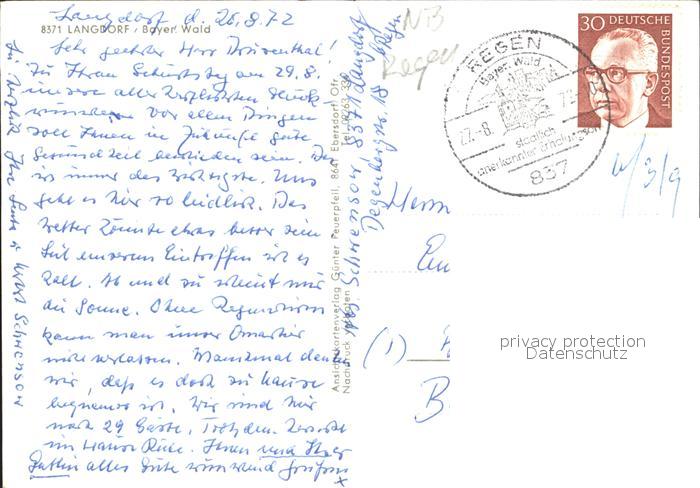 Langdorf d. 26.8.72
8371 LANGDORF / Bayer. Wald
Sehr geehrter Herr
Zu Ihrem Geburtstag am 29.8.
unsere aller herzlichsten Glück
wünsche. Vor allem Dingen
soll Ihnen in Zukunft gute
Gesundheit beschieden sein. Das
ist immer das wichtigste. Uns
geht es hier so leidlich. Das
Wetter könnte etwas besser sein
Seit unserem Eintreffen ist es
kalt. Ab und zu scheint mal
die Sonne. Ohne Regenschirm
kann man unser Quartier
nicht verlassen. Manchmal denken
wir, daß es doch zu Hause
bequemer ist. Wir sind hier
noch 29 Gäste. Trotzdem herrscht
im Hause Ruhe. Ihnen und Ihrer
Gattin alles Gute wünschend grüßen
x
Ansichtkartenverlag Günter Feuerpfeil, 8641 Ebersdorf/Ofr.
Tel. 09263 339
Nachdruck verboten
Abs. Schwensow, 8371 Langdorf
b/Regen
Degenbergstr. 18
NB
Regen
REGEN
Bayer. Wald
27.-8.
72
staatlich
anerkannter Erholungsort
837
30 DEUTSCHE
BUNDESPOST
Herrn
(1)
B
privacy protection
Datenschutz